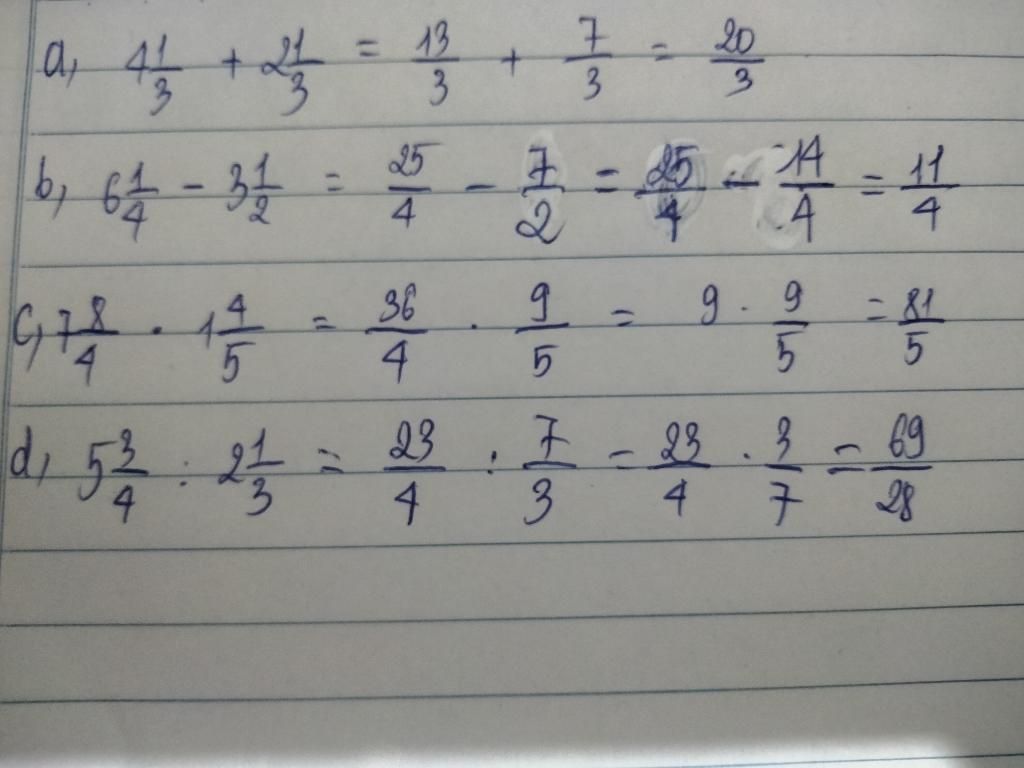 a, 4 1/3 + 2 1/3 = 13/3 + 7/3 = 20/3
b, 6 1/4 - 3 1/2 = 25/4 - 7/2 = 25/4 - 14/4 = 11/4
c, 7 8/4 . 1 4/5 = 36/4 . 9/5 = 9 . 9/5 = 81/5
d, 5 3/4 : 2 1/3 = 23/4 : 7/3 = 23/4 . 3/7 = 69/28